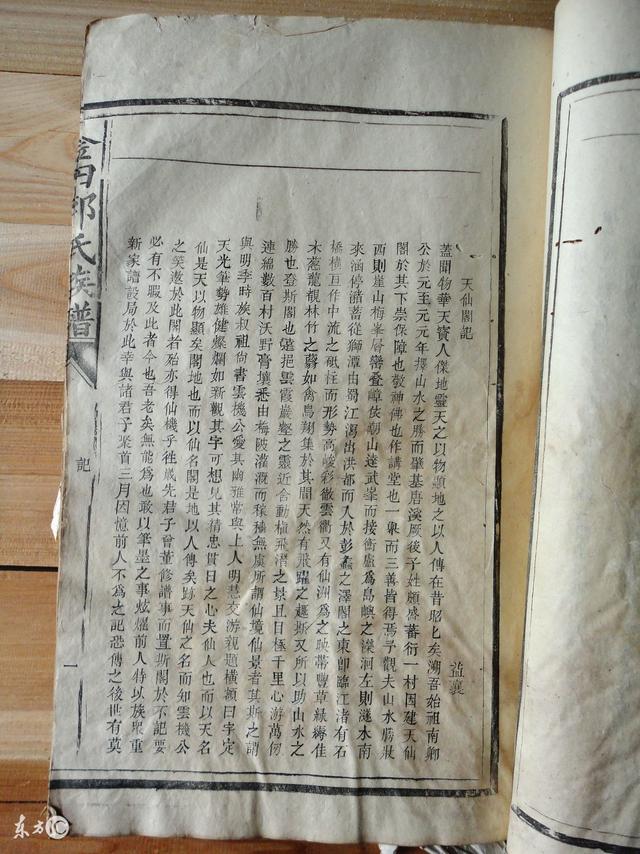 天仙閣記
益襄
蓋聞物華天寶人傑地靈天之以物顯地之以人傳在昔昭昭矣溯吾始祖南卿
公於元至元元年擇山水之勝而肇基唐溪厥後子姓頗盛蕃衍一村因建天仙
閣於其下崇保障也敬神佛也作講堂也一舉而三善皆得焉予觀夫山水勝狀
西則崖山梅峯層巒疊嶂使朝山達武峯而接衡廬為島嶼之瀠洄左則滋水南
來涵停滀蓄從獅潭由蜀江瀉出洪都而入於彭蠡之澤閣之東即臨江渚有石
橋橫亘作中流之砥柱而形勢高峻彩徹雲衢又有仙洲為之映帶豐草綠縟佳
木葱蘢覩林竹之翳如禽鳥翔集於其間天然有飛躍之趣斯又所以助山水之
勝也登斯閣也遠挹雲霞巖壑之靈近含動植飛潛之景且目極千里心游萬仞
連綿數百村沃野膏壤悉由梅陂灌溉而稼穡無虞所謂仙境仙景者其斯之謂
與明季時族叔祖尚書雲機公愛其幽雅常與上人明慧交游親題橫額曰字定
天光筆勢雄健燦爛如新觀其字可想見其精忠貫日之心夫仙人也而以天名
仙是天以物顯矣閣地也而以仙名閣是地以人傳矣跡天仙之名而知雲機公
之笑遨於此閣者殆亦得仙機乎徃歲先君子曾董修譜事而置斯閣於不記要
必有不暇及此者今也吾老矣無能為也敢以筆墨之事炫燿前人特以族眾重
新家譜設局於此幸與諸君子聚首三月因憶前人不為之記恐傳之後世有莫
邱氏族譜
記
一
东方